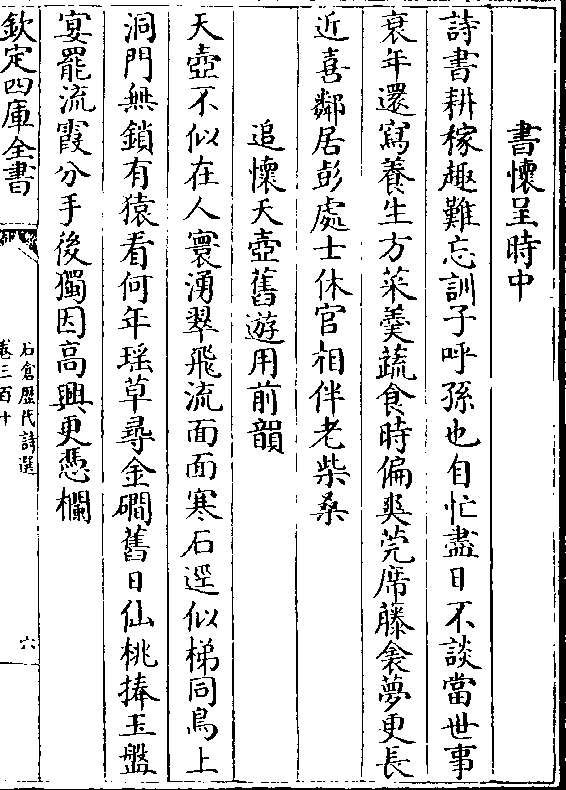 書懷呈時中
詩書耕稼趣難忘訓子呼孫也自忙盡日不談當世事
衰年還寫養生方菜羮蔬食時偏爽莞席藤衾夢更長
近喜鄰居彭處士休官相伴老柴桑
追懷天壺舊遊用前韻
天壺不似在人寰湧翠飛流面面寒石逕似梯同鳥上
洞門無鎖有猿看何年瑶草尋金磵舊日仙桃捧玉盤
宴罷流霞分手後獨因高興更憑欄
欽定四庫全書
石倉歷代詩選
卷三百十
六